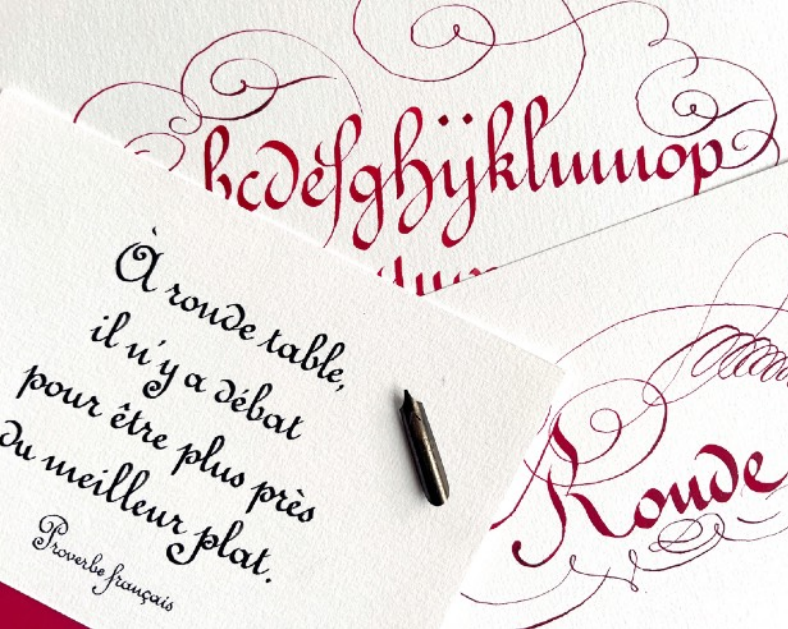 bcdefghijklmnop
À ronde table,
il n'y a débat
pour être plus près
du meilleur plat.
Proverbe français
Ronde